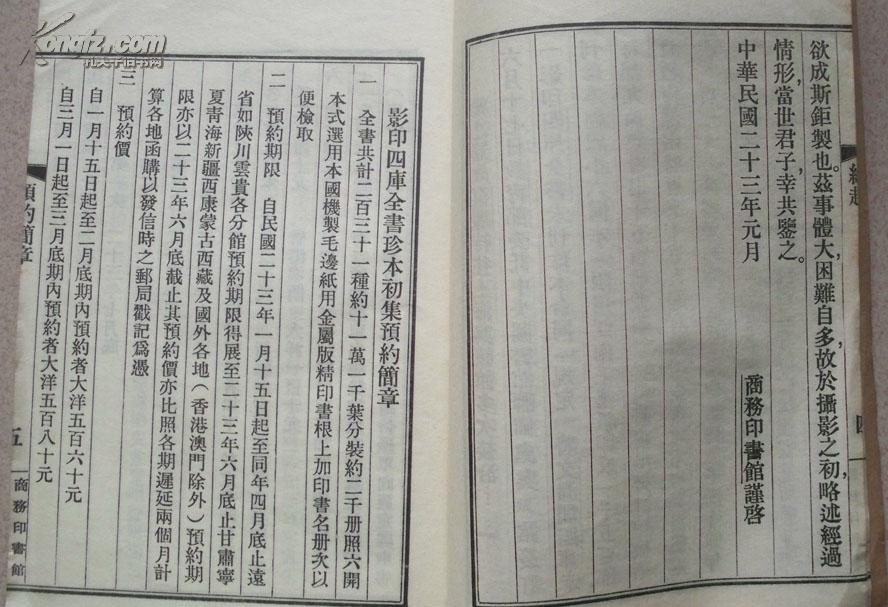 欲成斯鉅製也。茲事體大，困難自多，故於攝影之初，略述經過
情形，當世君子，幸共鑒之。
中華民國二十三年元月
商務印書館謹啓
四
影印四庫全書珍本初集預約簡章
一　全書共計二百三十一種約十一萬一千葉分裝約二千册照六開
本式選用本國機製毛邊紙用金屬版精印書根上加印書名册次以
便檢取
二　預約期限　自民國二十三年一月十五日起至同年四月底止遠
省如陝川雲貴各分館預約期限得展至二十三年六月底止甘肅寧
夏青海新疆西康蒙古西藏及國外各地（香港澳門除外）預約期
限亦以二十三年六月底截止其預約價亦比照各期遲延兩個月計
算各地函購以發信時之郵局戳記爲憑
三　預約價
自一月十五日起至二月底期內預約者大洋五百六十元
自三月一日起至三月底期內預約者大洋五百八十元
預約簡章
五
商務印書館
Kongfz.com
孔夫子旧书网